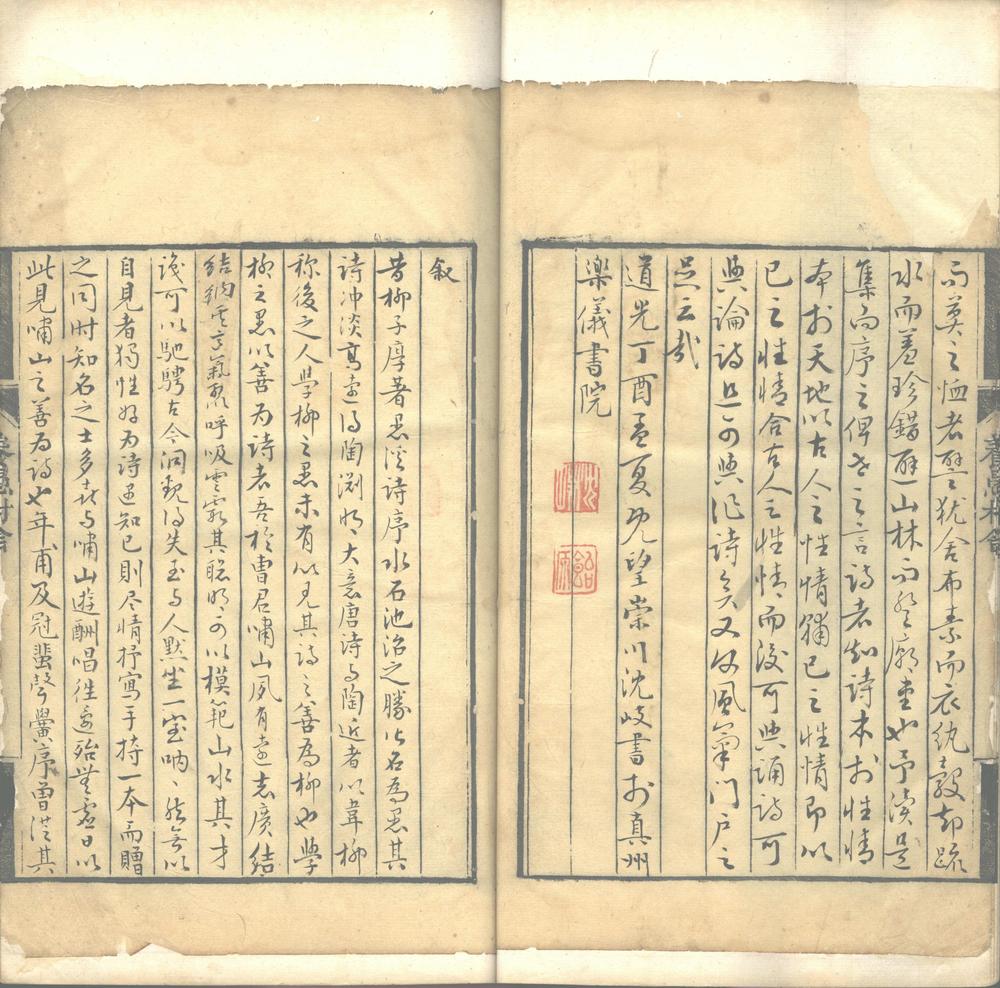 而莫之恤者譬猶舍布素而衣紈縠却蔬
水而羞珍錯避山林而登廟堂也予讀是
集而序之俾世之言詩者知詩本於性情
本於天地以古人之性情歸已之性情即以
已之性情合古人之性情而後可與誦詩可
與論詩且可與作詩矣又何風氣門戶之
足云哉
道光丁酉孟夏既望崇川沈岐書於真州
樂儀書院
叙
昔柳子厚著愚溪詩序水石池沼之勝皆名為愚其
詩冲淡高遠得陶淵明大意唐詩与陶近者以韋柳
称後之人學柳之愚未有以見其詩之善為柳也學
柳之愚以善為詩者吾於曹君嘯山夙有遠志廣結
結納其意氣眾呼吸雲霧其聪明可以模範山水其才
識可以馳騁古今洞觀得失至与人默坐一室呐ヽ然無以
自見者獨性好為詩遇知己則尽情抒寫手持一本而贈
之同时知名之士多喜与嘯山遊酬唱往還殆無虛日以
此見嘯山之善為詩也年甫及冠蜚聲黌序曾從其